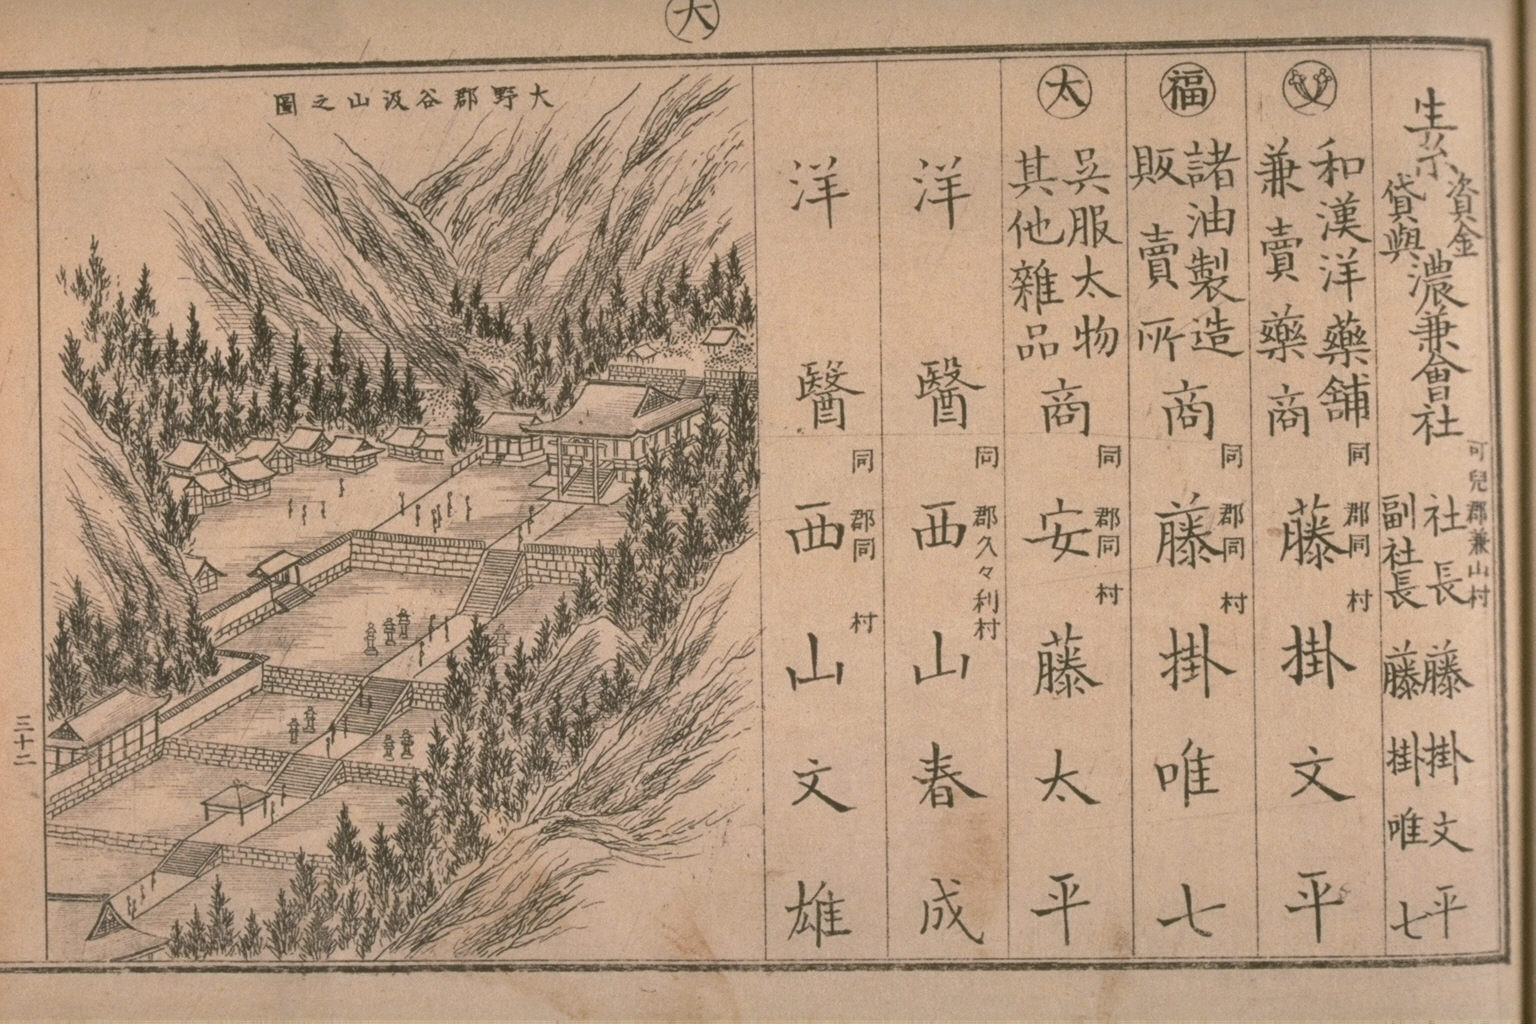 大
生糸
資金
貸與
濃兼會社
可兒郡兼山村
社長 藤掛文平
副社長 藤掛唯七
和漢洋藥舖
兼賣藥商
同郡同村
藤掛文平
福
諸油製造
販賣所
商
同郡同村
藤掛唯七
太
呉服太物
其他雜品
商
同郡同村
安藤太平
洋醫
同郡久々利村
西山春成
洋醫
同郡同村
西山文雄
大野郡谷汲山之圖
三十二